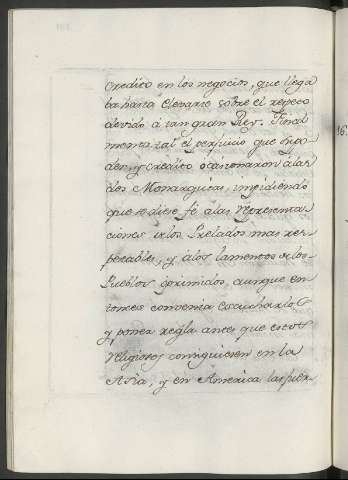 credito en los negocios, que llega
ba hasta elevarse sobre el respeto
devido á tan gran Rey. Final
mente tal el perjuicio que su po
der, y credito ocasionaron á las
dos Monarquias, impidiendo
que se diese fé a las representa
ciones de los Prelados mas res-
petables, y a los lamentos de los
Pueblos oprimidos, aunque en
tonces convenia escucharlos
y poner regla antes que estos
religiosos consiguiesen en la
Asia, y en America las fuer-